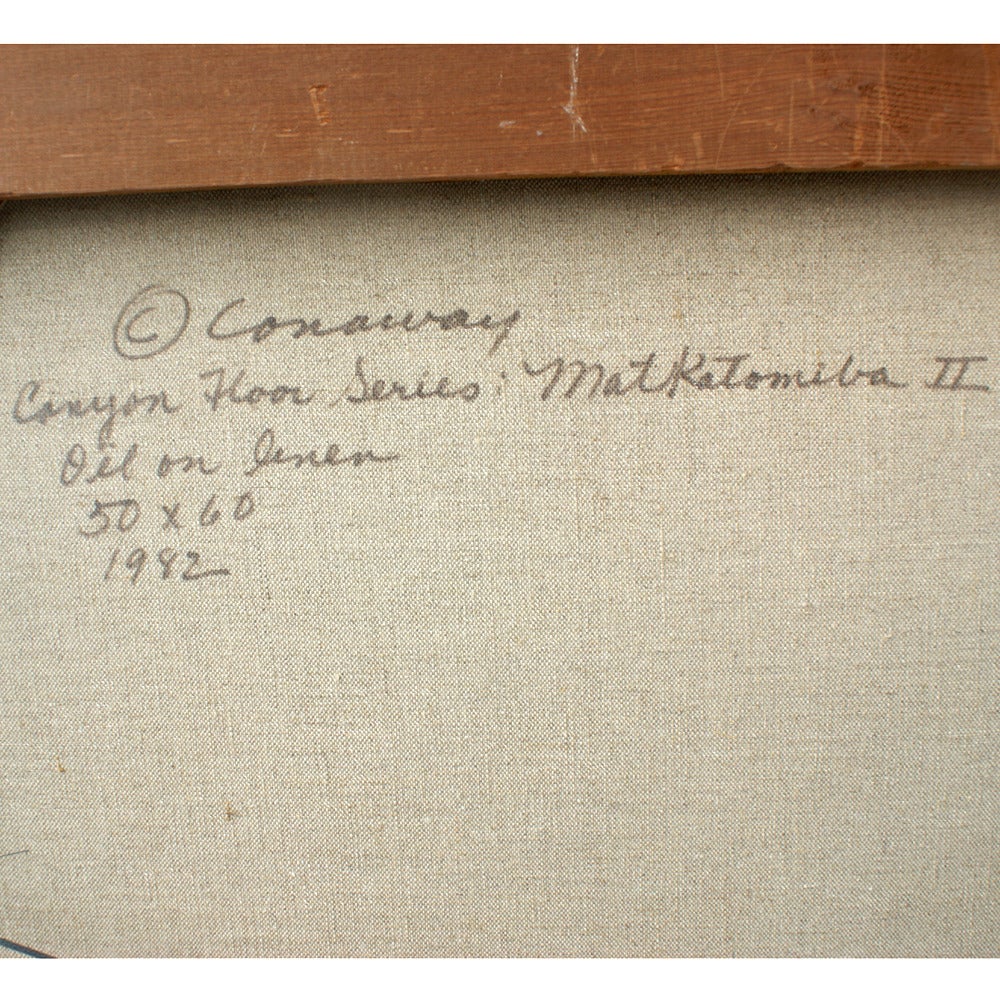 © Conaway
Canyon Floor Series: MatKatomiba II
Oil on linen
50 x 60
1982